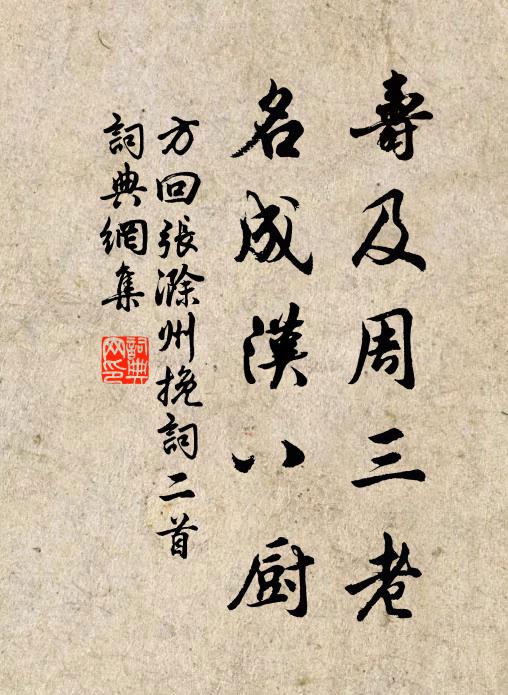 壽及周三老
名成漢八厨
方回張滁州挽詞二首
詞典網集
詞典網印